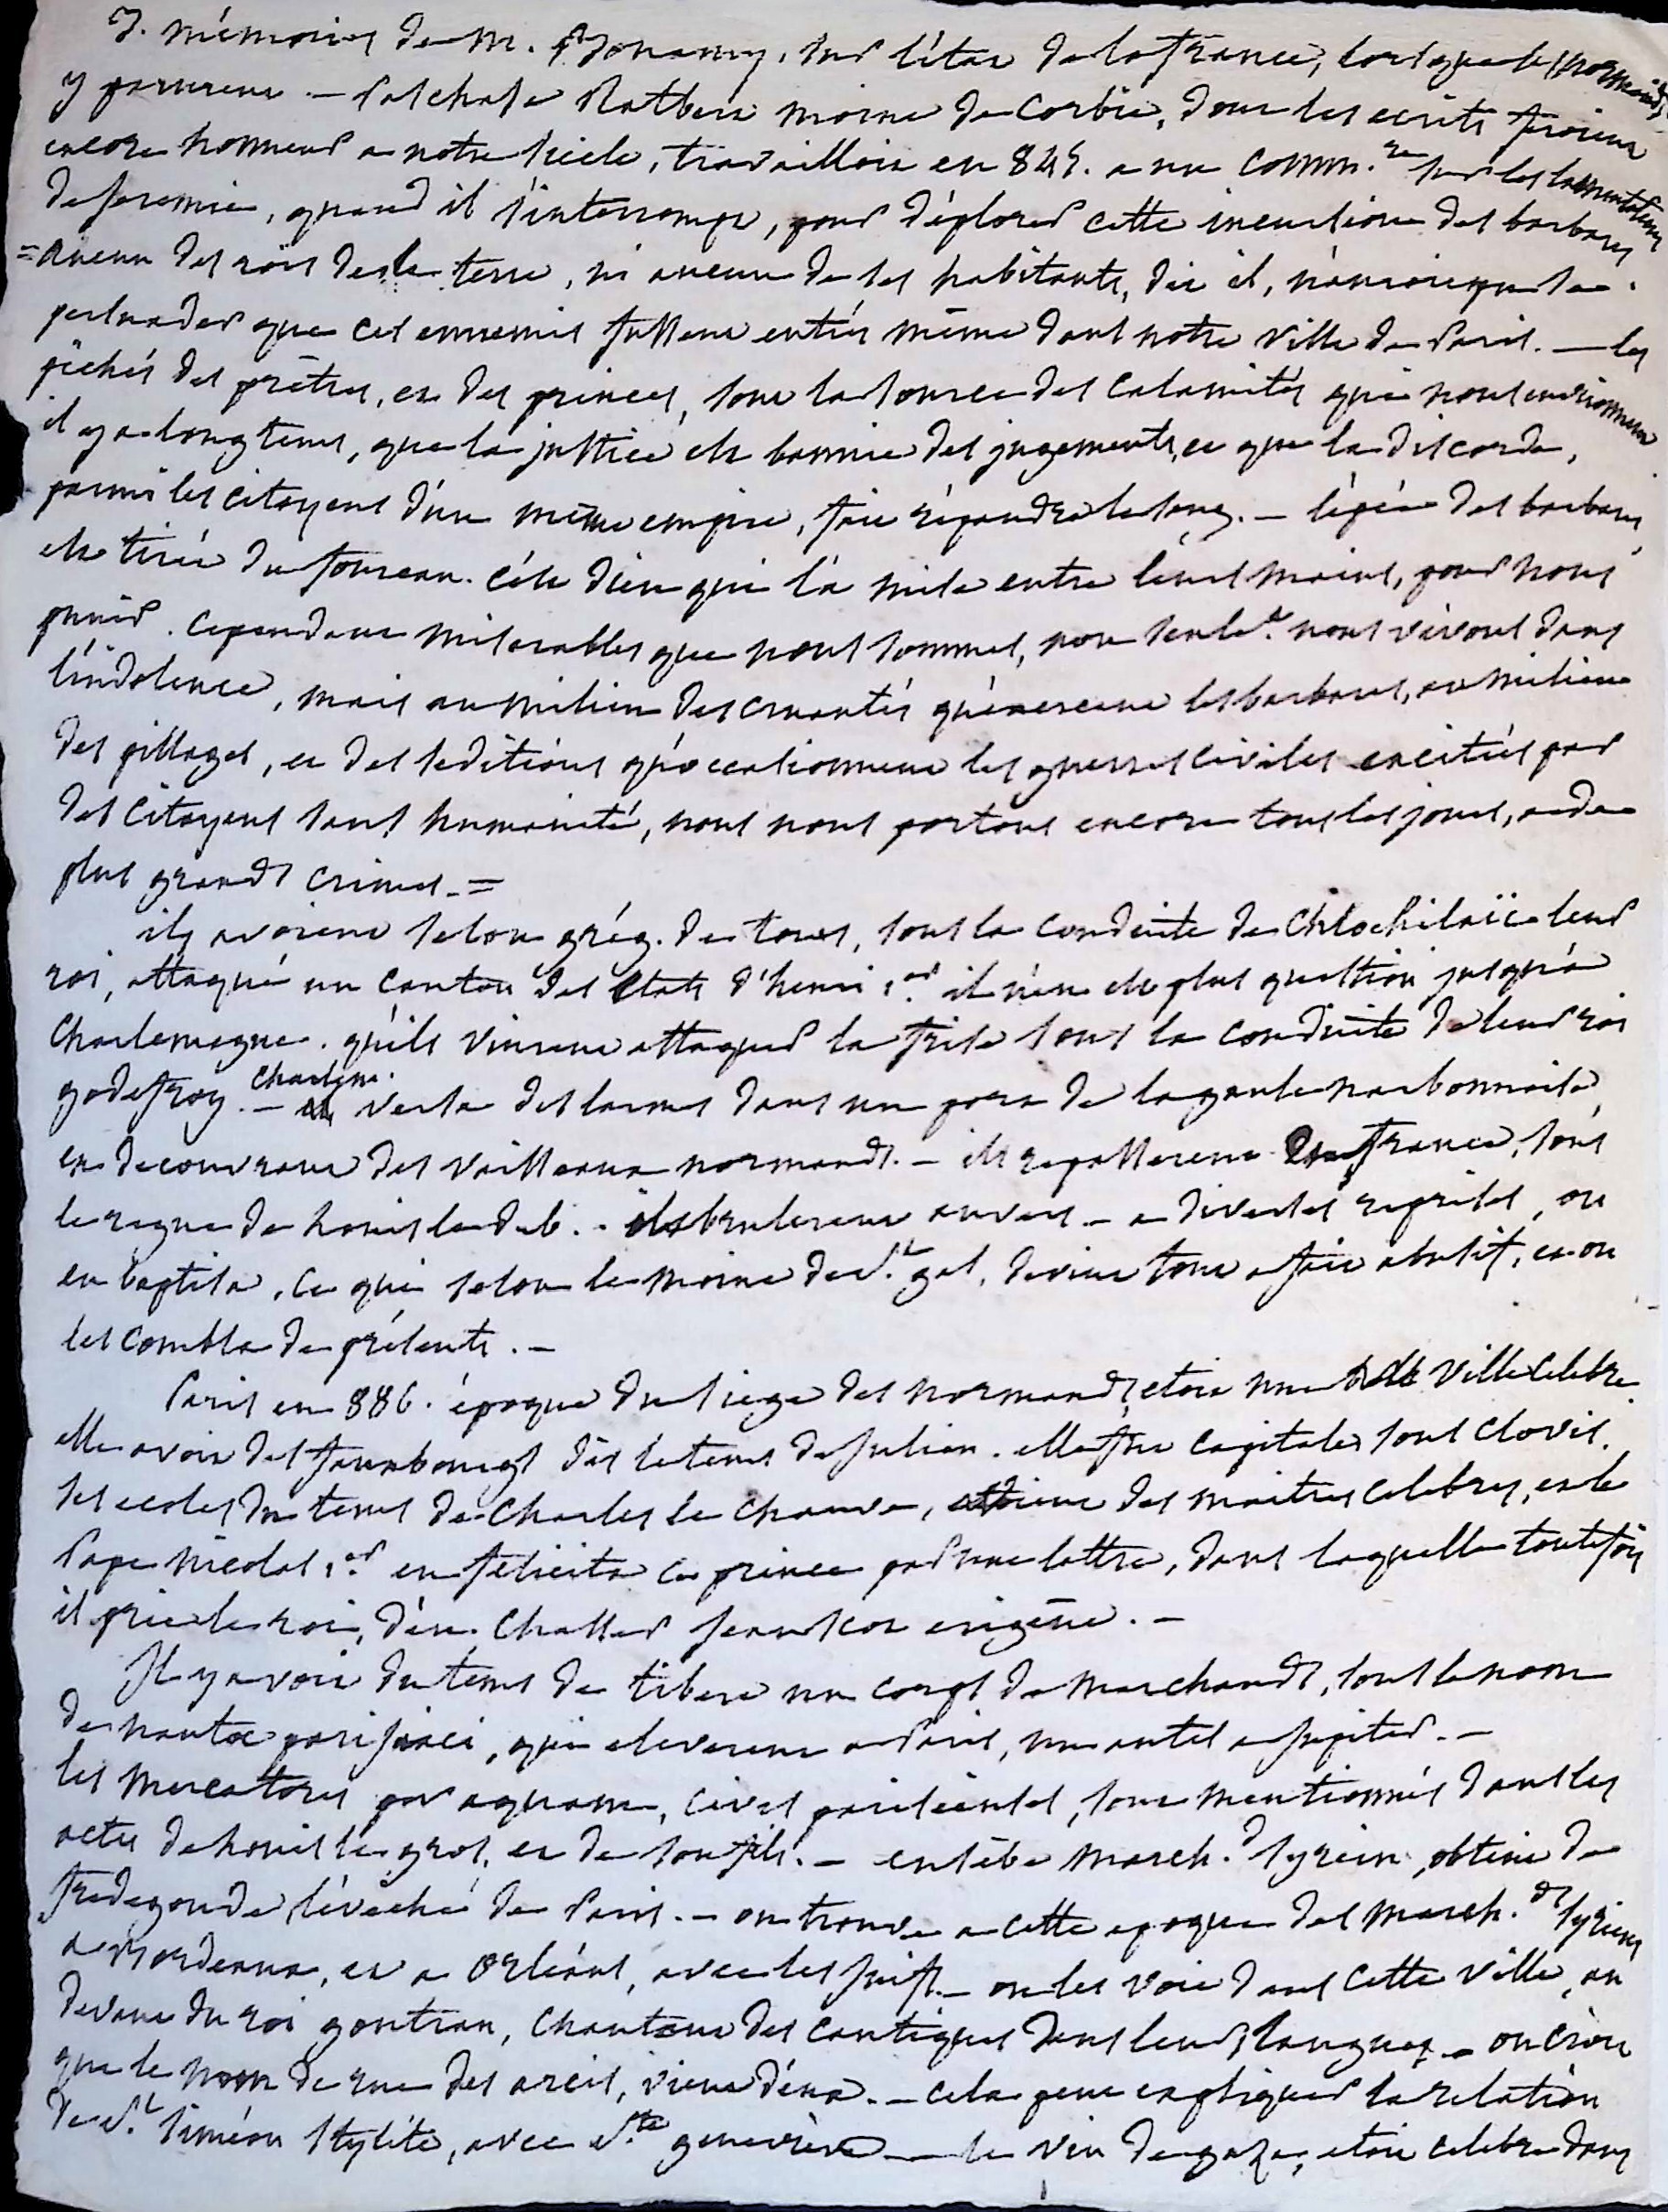 7. mémoires de M. Bonamy, sur l'état de la france, lorsque les normands
y parurent – Paschase Ratbert moine de Corbie, dont les ecrits feroient
encore honneur a notre siecle, travailloit en 845. a un comm.re sur les lamentations
de Jeremie, quand il s'interrompt, pour déplorer cette incursion des barbares.
= aucun des rois de la terre, ni aucun de ses habitants, dit il, n'auroient pu se
persuader que ces ennemis fussent entrés même dans notre ville de Paris. – les
péchés des prêtres, et des princes, sont la source des calamités qui nous environnent
il y a longtems, que la justice est bannie des jugements, et que la discorde,
parmi les citoyens d'un même empire, fait répandre le sang. – l'épée des barbares
est tirée du foureau. c'est dieu qui l'a mise entre leurs mains, pour nous
punir. cependant miserables que nous sommes, non seulem.t nous vivons dans
l'indolence, mais au milieu des cruautés qu'exercent les barbares, au milieu
des pillages, et des séditions qu'occasionnent les guerres civiles excitées par
des citoyens sans humanité, nous nous portons encore tous les jours, a de
plus grands crimes. =
ils avoient selon grég. de tours, sous la conduite de Chlochilaïc leur
roi, attaqué un canton des Etats d'henri 1.er il n'en est plus question jusqu'a
Charlemagne. qu'ils vinrent attaquer la frise sous la conduite de leur roi
godefroy. – Charlem. versa des larmes dans un port de la gaule narbonnaise,
en decouvrant des vaisseaux normands. – ils repasserent en france, sous
le regne de Louis le deb. – ils brulerent anvers – a diverses reprises, on
en baptisa, ce qui selon le moine de S.t gal, devint tout a fait abusif, et on
les combla de présents. –
Paris en 886. époque du siege des normands, etoit une ville celebre.
elle avoit des fauxbourgs dès le tems de Julien. elle fut capitale sous Clovis.
ses ecoles du tems de Charles le chauve, avoient des maitres celebres, et le
Pape Nicolas 1.er en felicita ce prince par une lettre, dans laquelle toutefois
il prie le roi, d'en chasser Jean scot erigène. –
Il y avoit du tems de tibere un corps de marchands, sous le nom
de nautae parisiaci, qui eleverent a Paris, un autel a Jupiter. –
les mercatores per aquam, cives parisienses, sont mentionnés dans les
actes de Louis le gros, et de son fils. – eusèbe march.d syrien, obtint de
fredegonde, l'évêché de Paris. – on trouve a cette epoque des march.ds syriens
a Bordeaux, et a Orléans, avec les juifs. – on les voit dans cette ville, au
devant du roi gontran, chantant des cantiques dans leurs langues. – on croit
que le nom de rue des arcis, vient d'eux. – cela peut expliquer la relation
de S.t Siméon Stylite, avec S.te geneviève – le vin de gaza, etoit celebre dans